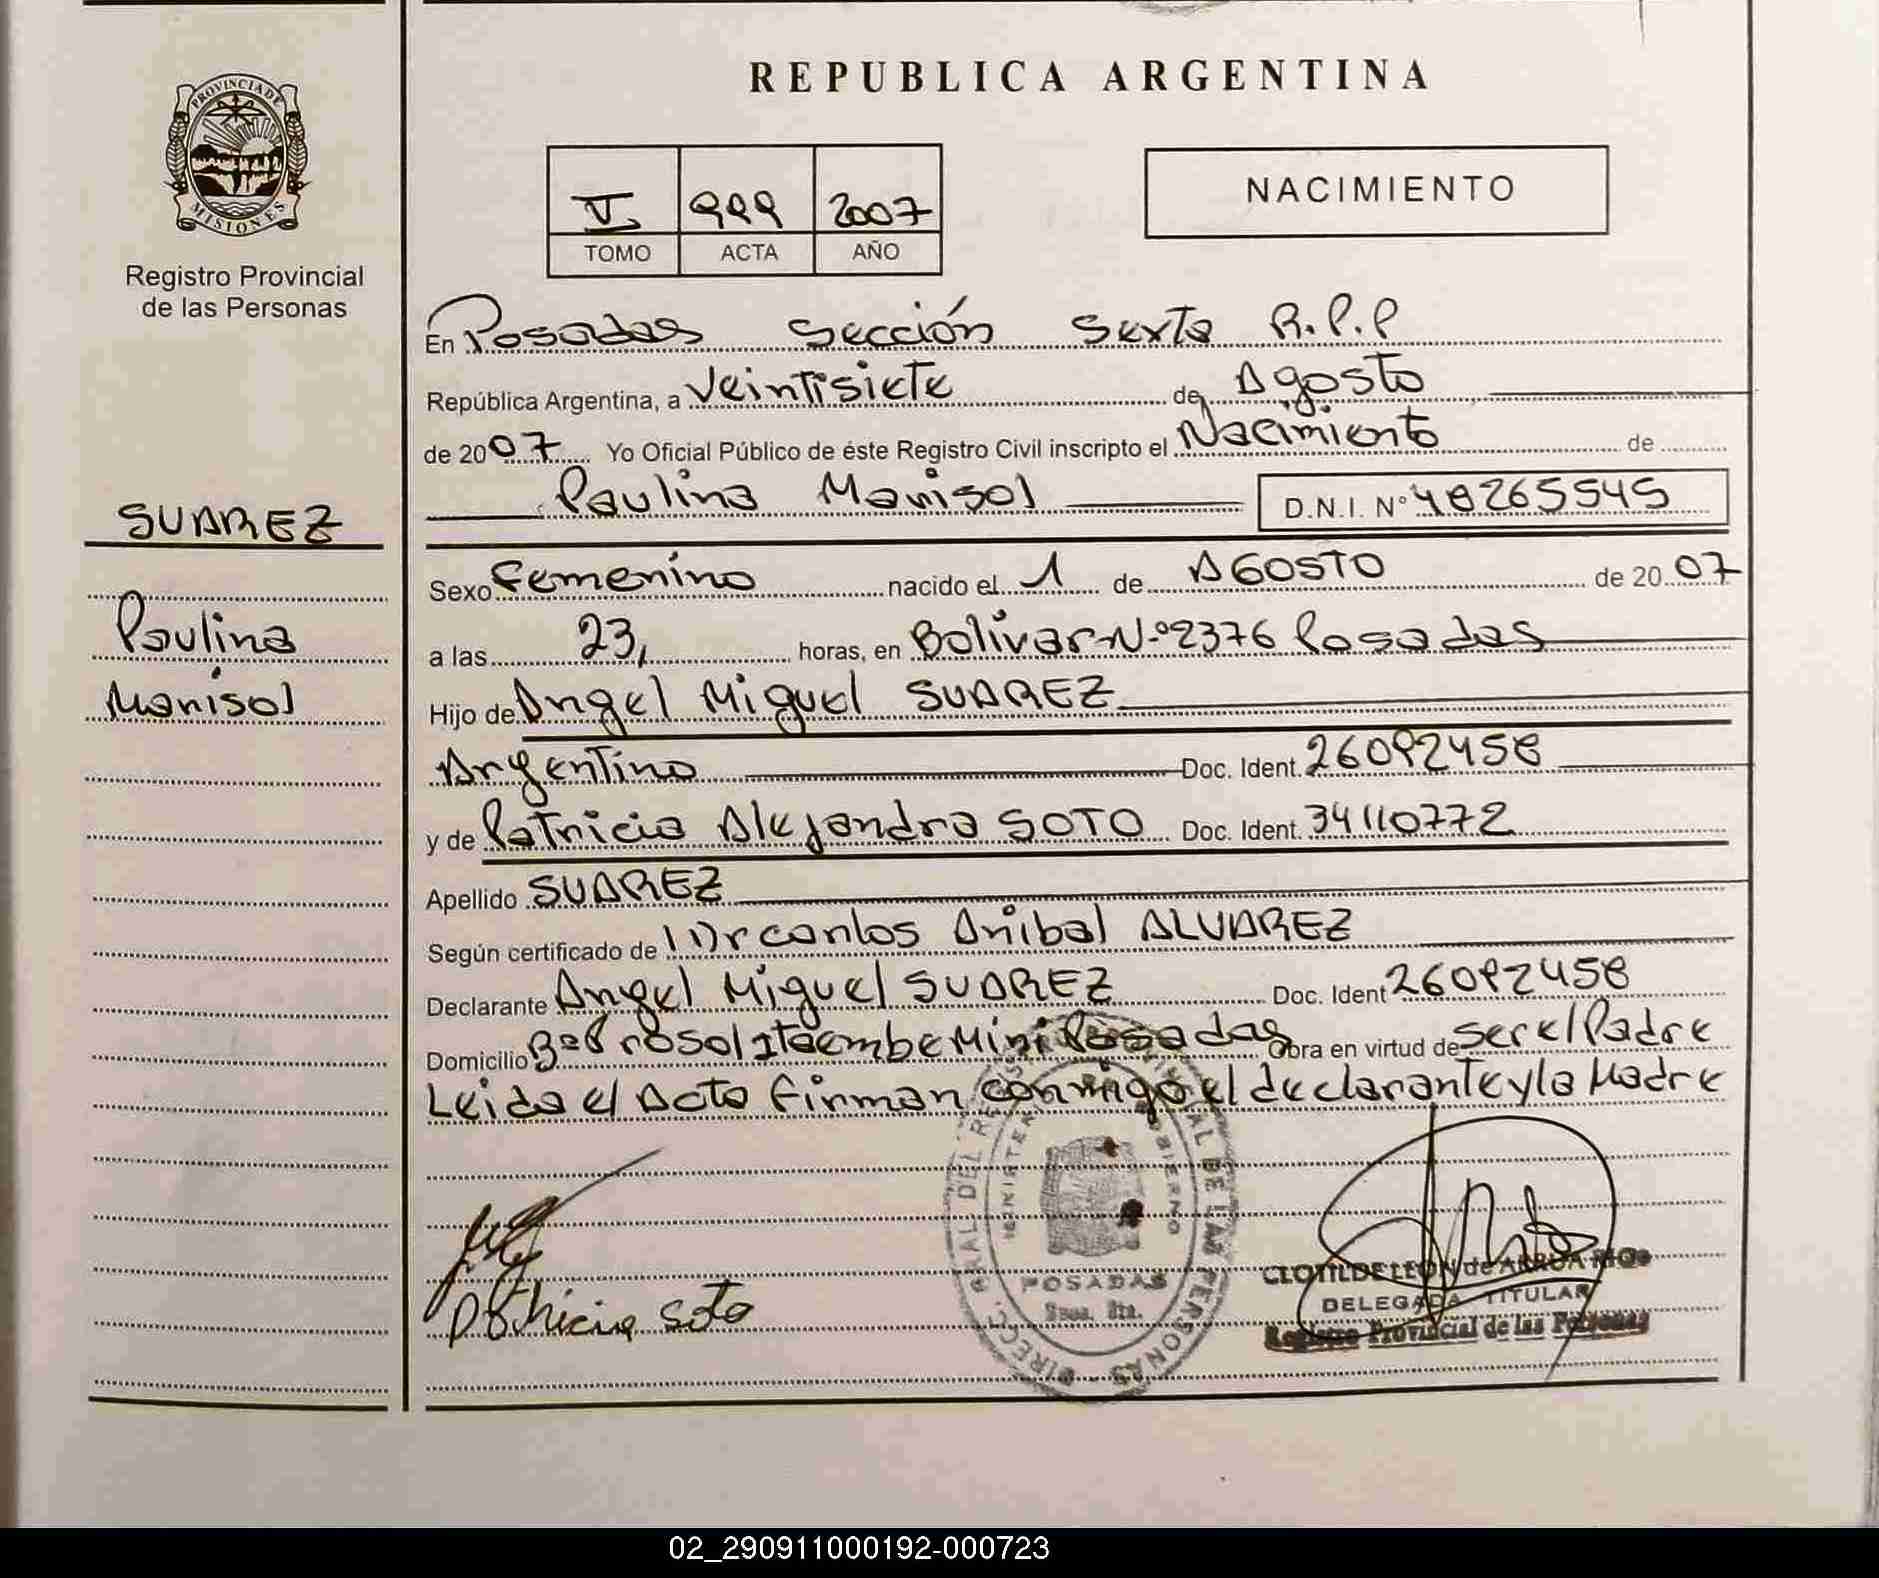 REPUBLICA ARGENTINA
PROVINCIA DE
MISIONES
Registro Provincial
de las Personas
V 999 2007
TOMO ACTA AÑO
NACIMIENTO
En Posadas Sección Sexta R.P.P
República Argentina, a Veintisiete de Agosto
de 2007 Yo Oficial Público de éste Registro Civil inscripto el Nacimiento de
Paulina Marisol D.N.I. Nº 48265545
SUAREZ
Paulina
Marisol
Sexo Femenino nacido el 1 de AGOSTO de 2007
a las 23, horas, en Bolívar Nº 2376 Posadas
Hijo de Angel Miguel SUAREZ
Argentino Doc. Ident. 26092458
y de Patricia Alejandra SOTO Doc. Ident. 34110772
Apellido SUAREZ
Según certificado de Dr Carlos Anibal ALVAREZ
Declarante Angel Miguel SUAREZ Doc. Ident 26092458
Domicilio Bº Prosol Itaembe Mini Posadas Obra en virtud de ser el Padre
Leida el Acta Firman conmigo el declarante y la Madre
Patricia Soto
POSADAS
Secc. 6ta.
CLOTILDE LEON de ARRUA RIOS
DELEGADA TITULAR
Registro Provincial de las Personas
02_290911000192-000723